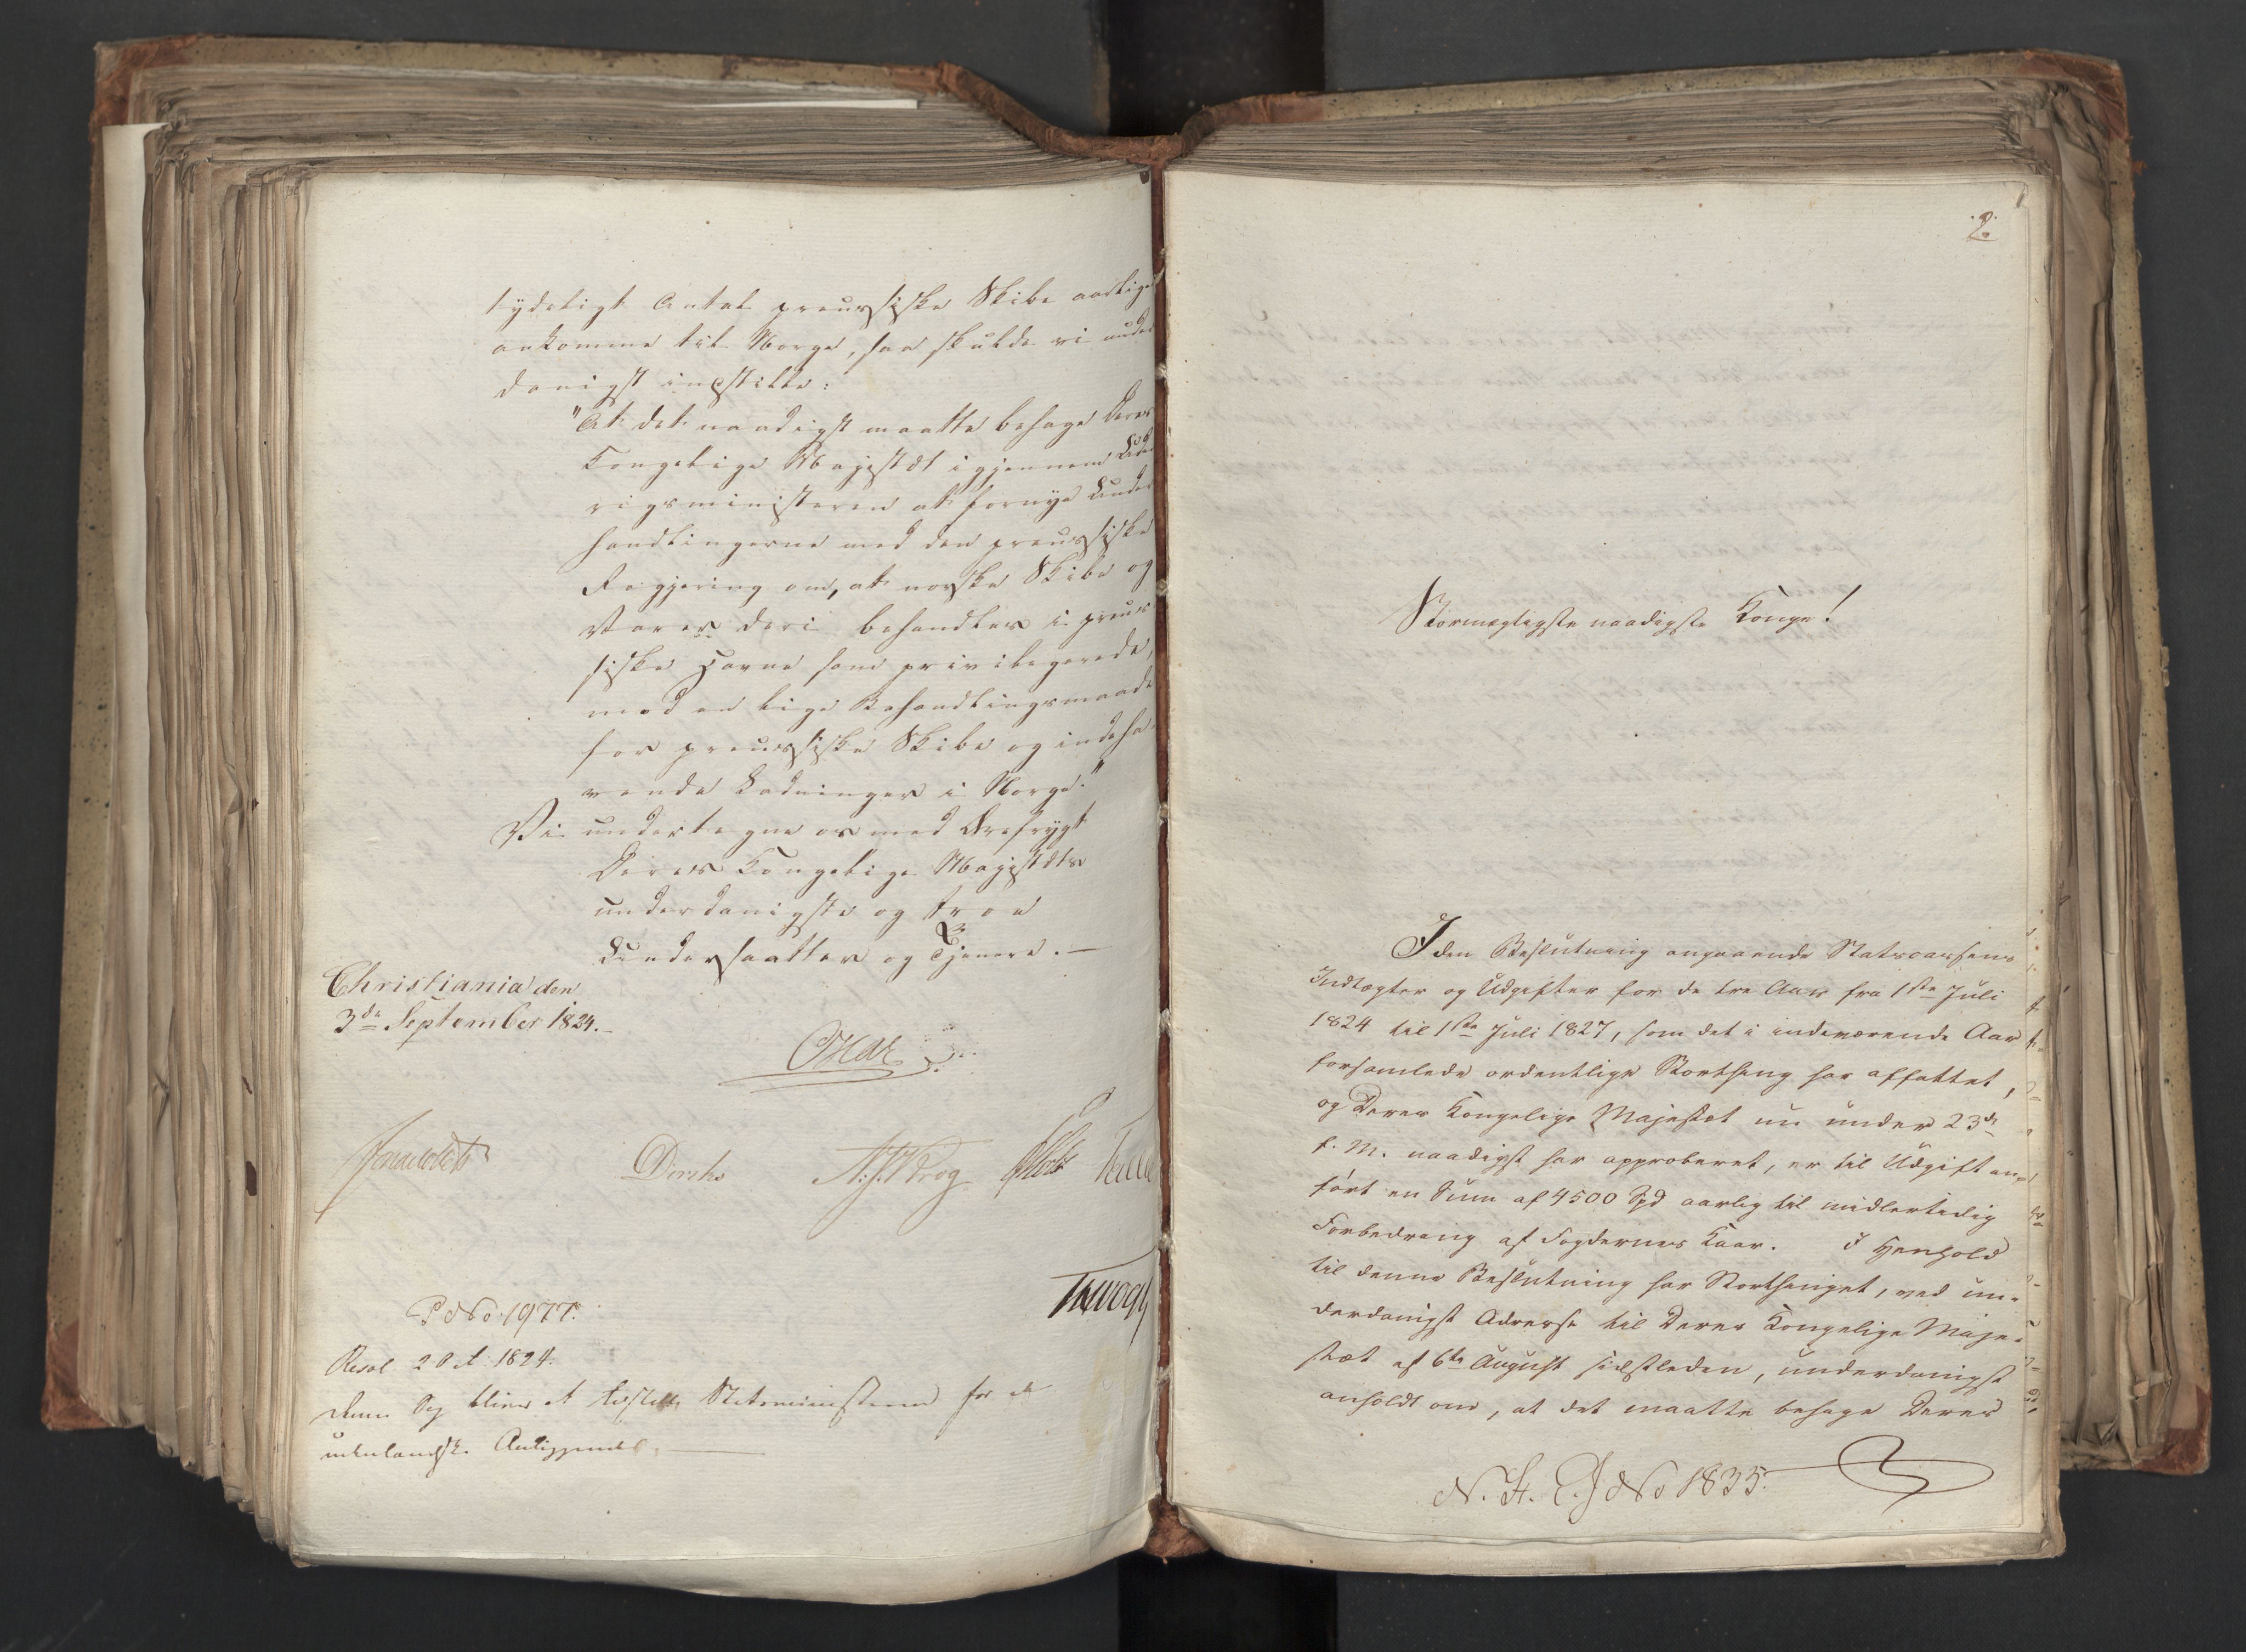 tydeligt Antal preussiske Skibe aarligen
ankomme til Norge, saa skulde vi under
danigst indstille:
"At det naadigst maatte behage Deres
Kongelige Majestæt igjennem Uden
rigsministeren at fornye Under
handlingerne med den preussiske
Regjering om, at norske Skibe og
Varer deri behandles i preus
siske Havne som privilegerede,
mod en lige Behandlingsmaade
for preussiske Skibe og indeha-
vende Ladninger i Norge."
Vi undertegne os med Ærefrygt
Deres Kongelige Majestæts
underdanigste og troe
Undersaatter og Tjenere. —
Christiania den
3de September 1824.
Oscar
Diriks A. J. Krog Motzf
P No 1977.
Resol 2 Oct 1824.
Denne Sag bliver at tilstille Statsministeren for de
udenlandske Anliggender. —
2.
Stormægtigste naadigste Konge!
I den Beslutning angaaende Statscassens
Indtægter og Udgifter for de tre Aar fra 1ste Juli
1824 til 1ste Juli 1827, som det i indeværende Aar
forsamlede ordentlige Storthing har affattet,
og Deres Kongelige Majestæt nu under 23de
f. M. naadigst har approberet, er til Udgift an-
ført en Sum af 4500 Spd aarlig til midlertidig
Forbedring af Fogdernes Kaar. I Henhold
til denne Beslutning har Storthinget, ved un-
derdanigst Adresse til Deres Kongelige Maje-
stæt af 6te August sidstleden, underdanigst
anholdt om, at det maatte behage Deres
N. St. E. J No 1835.